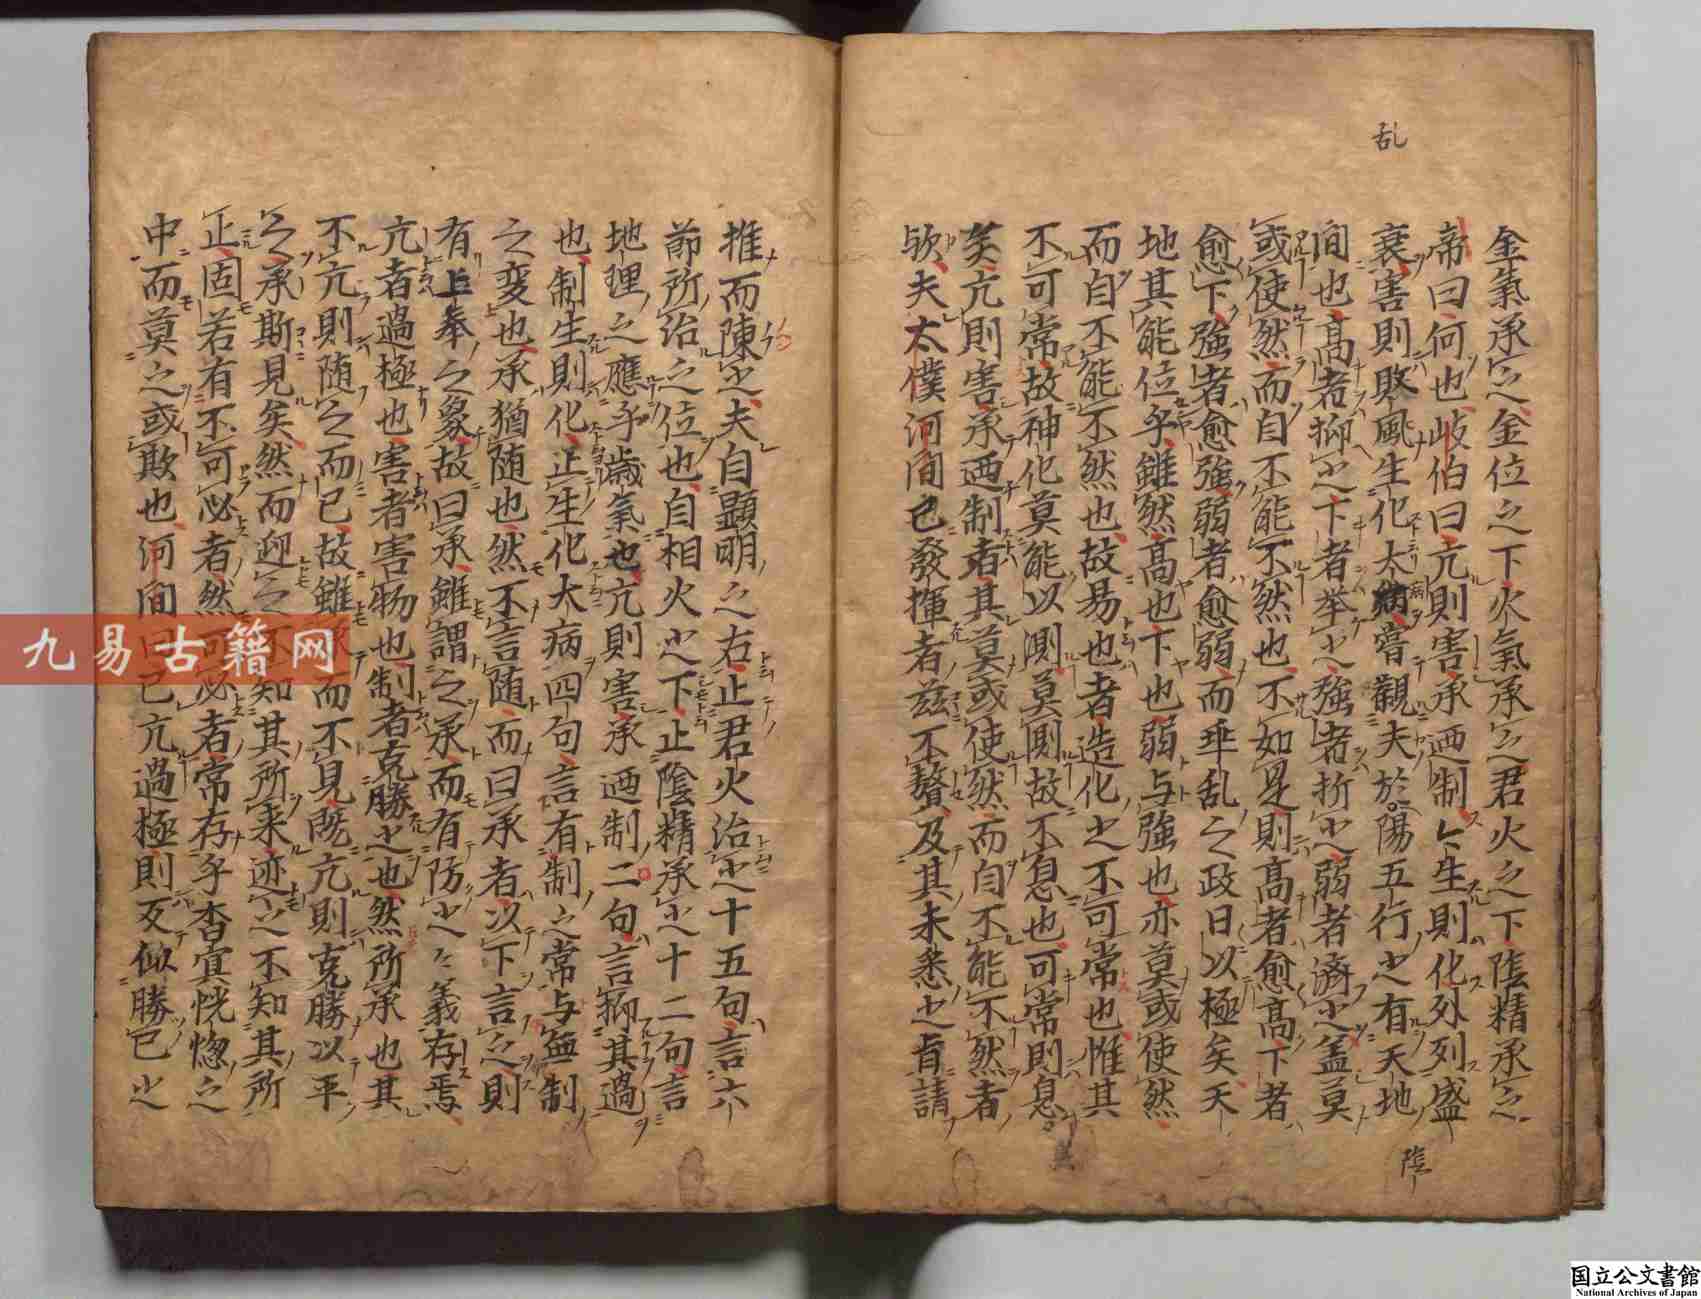 乱
金氣承之金位之下火氣承之君火之下陰精承之
帝曰何也岐伯曰亢則害承迺制〻生則化外列盛
衰害則敗風生化太病嘗觀夫於陽五行之有天地
病
陰
間也高者抑之下者挙之強者折之弱者濟之盖莫
或使然而自不能不然也不如是則高者愈高下者
愈下強者愈強弱者愈弱而乖乱之政日以極矣天
地其能位乎雖然高也下也弱与強也亦莫或使然
而自不能不然也故易也者造化之不可常也惟其
不可常故神化莫能以測莫測故不息也可常則息
矣亢則害承迺制者其莫或使然而自不能不然者
欤夫太僕河間已發揮者茲不贅及其未悉之旨請
推而陳之夫自顯明之右止君火治之十五句言六
節所治之位也自相火之下止陰精承之十二句言
地理之應乎歳氣也亢則害承迺制二句言抑其過
也制生則化止生化太病四句言有制之常与無制
之変也承猶随也然不言随而曰承者以下言之則
有上奉之象故曰承雖謂之承而有防之之義存焉
亢者過極也害者害物也制者克勝之也然所承也其
不亢則随之而已故雖承而不見既亢則克勝以平
之承斯見矣然而迎之不知其所来迹之不知其所
止固若有不可必者然可必者常存乎杳冥恍惚之
中而莫之或欺也河間曰己亢過極則反似勝己之
九易古籍网
国立公文書館
National Archives of Japan